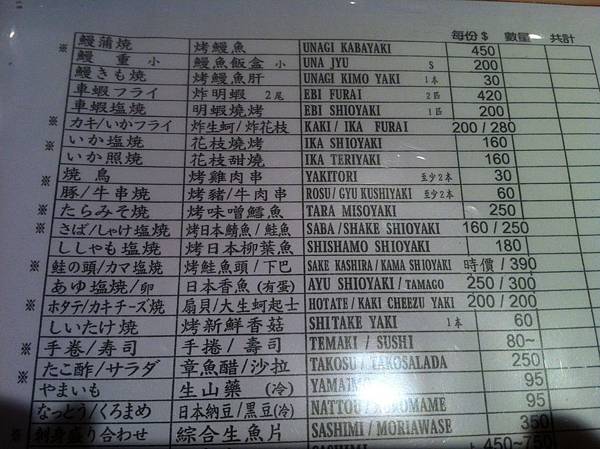 每份 $ 數量 共計
※ 鰻蒲焼 烤鰻魚 UNAGI KABAYAKI 450
鰻 重 小 鰻魚飯盒 小 UNA JYU S 200
鰻きも焼 烤鰻魚肝 UNAGI KIMO YAKI 1本 30
車蝦フライ 炸明蝦 2尾 EBI FURAI 2匹 420
車蝦塩焼 明蝦燒烤 EBI SHIOYAKI 1匹 200
※ カキ/いかフライ 炸生蚵/炸花枝 KAKI / IKA FURAI 200 / 280
※ いか塩焼 花枝燒烤 IKA SHIOYAKI 160
いか照焼 花枝甜燒 IKA TERIYAKI 160
※ 焼 鳥 烤雞肉串 YAKITORI 至少2本 30
※ 豚/牛串焼 烤豬/牛肉串 ROSU/GYU KUSHIYAKI 至少2本 60
※ たらみそ焼 烤味噌鱈魚 TARA MISOYAKI 250
※ さば/しゃけ塩焼 烤日本鯖魚/鮭魚 SABA/SHAKE SHIOYAKI 160 / 250
ししゃも塩焼 烤日本柳葉魚 SHISHAMO SHIOYAKI 180
※ 鮭の頭/カマ塩焼 烤鮭魚頭/下巴 SAKE KASHIRA/KAMA SHIOYAKI 時價/390
あゆ塩焼/卵 日本香魚(有蛋) AYU SHIOYAKI/TAMAGO 250 / 300
※ ホタテ/カキチーズ焼 扇貝/大生蚵起士 HOTATE/KAKI CHEEZU YAKI 200 / 200
しいたけ焼 烤新鮮香菇 SHITAKE YAKI 1本 60
※ 手巻/寿司 手捲/壽司 TEMAKI / SUSHI 80~
※ たこ酢/サラダ 章魚醋/沙拉 TAKOSU/TAKOSALADA 250
やまいも 生山藥 (冷) YAMAIMO 95
なっとう/くろまめ 日本納豆/黑豆(冷) NATTOU/KUROMAME 95
※ 刺身盛り合わせ 綜合生魚片 SASHIMI/MORIAWASE 350
SASHIMI 450~750